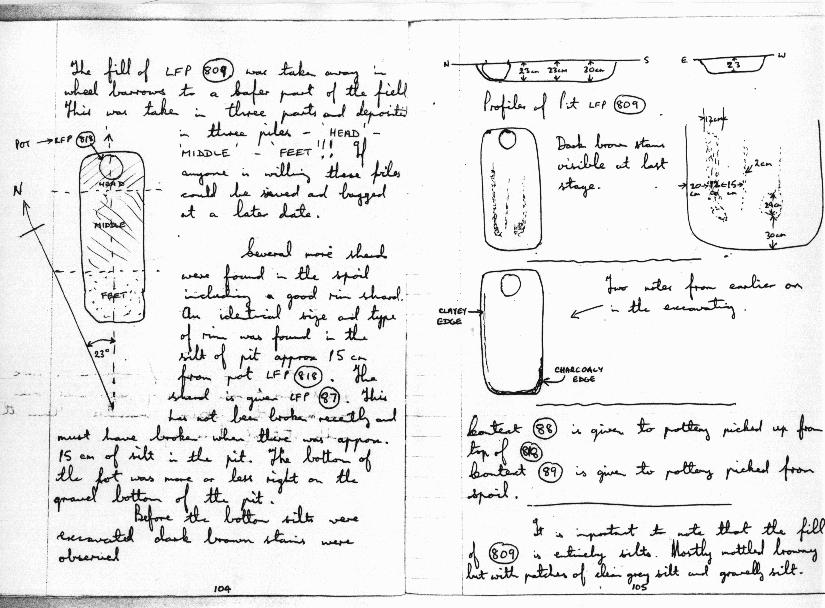 The fill of LFP 809 was taken away in
wheel barrows to a safer part of the field
This was taken in three parts and deposited
in three piles - HEAD -
MIDDLE - FEET !!! If
anyone is willing these piles
could be saved and bagged
at a later date.
POT → LFP 818
N
HEAD
MIDDLE
FEET
23°
Several more sherds
were found in the spoil
including a good rim sherd.
An identical size and type
of rim was found in the
silt of pit approx 15 cm
from pot LFP 818. The
sherd is given LFP 87. This
has not been broken recently and
must have broken when there was approx.
15 cm of silt in the pit. The bottom of
the pot was more or less right on the
gravel bottom of the pit.
Before the bottom silts were
excavated dark brown stains were
observed
104
N
23cm 23cm 20cm
S
E
23
W
Profiles of Pit LFP 809
Dark brown stains
visible at last
stage.
12cm
2cm
20 cm
12 cm
15 cm
30cm
Two notes from earlier on
in the excavating.
CLAYEY
EDGE
CHARCOALY
EDGE
Context 88 is given to pottery picked up from
top of 818
Context 89 is given to pottery picked from
spoil.
It is inportant to note that the fill
of 809 is entirely silts. Mostly mottled browny
but with patches of clean grey silt and gravelly silt.
105